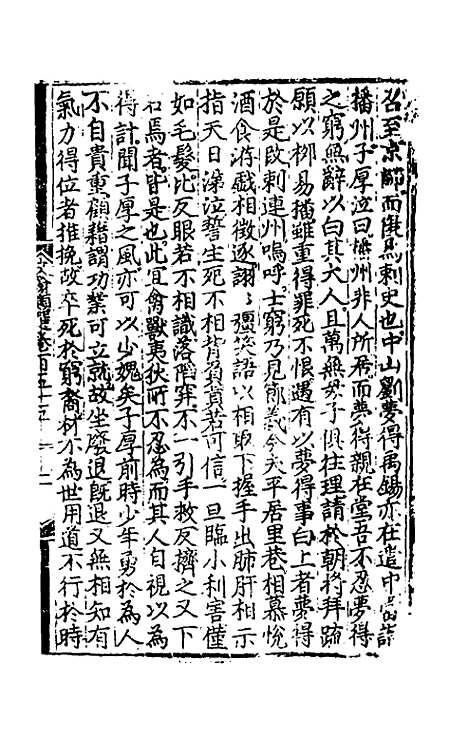 召至京師而復爲刺史也中山劉夢得禹錫亦在遣中當詣
播州子厚泣曰播州非人所居而夢得親在堂吾不忍夢得
之窮無辭以白其大人且萬無母子俱往理請於朝將拜疏
願以柳易播雖重得罪死不恨遇有以夢得事白上者夢得
於是改刺連州嗚呼士窮乃見節義今夫平居里巷相慕悅
酒食游戲相徵逐詡〻彊笑語以相取下握手出肺肝相示
指天日涕泣誓生死不相背負真若可信一旦臨小利害僅
如毛髮比反眼若不相識落陷穽不一引手救反擠之又下
石焉者皆是也此宜禽獸夷狄所不忍為而其人自視以為
得計聞子厚之風亦可以少媿矣子厚前時少年勇於為人
不自貴重顧藉謂功業可立就故坐廢退既退又無相知有
氣力得位者推挽故卒死於窮裔材不為世用道不行於時